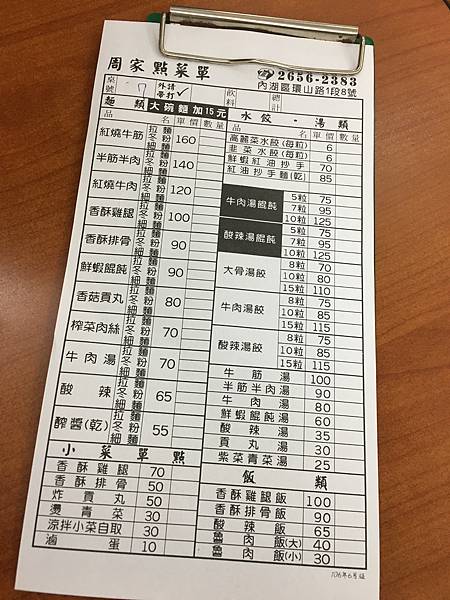 周家點菜單
☎2656-2383
內湖區環山路1段8號
桌號
外請帶打✓
飲料
總計
麵類 大碗麵加15元
品名 單價 數量
紅燒牛筋 拉麵 冬粉 細麵 160
半筋半肉 拉麵 冬粉 細麵 140
紅燒牛肉 拉麵 冬粉 細麵 120
香酥雞腿 拉麵 冬粉 細麵 100
香酥排骨 拉麵 冬粉 細麵 90
鮮蝦餛飩 拉麵 冬粉 細麵 90
香菇貢丸 拉麵 冬粉 細麵 80
榨菜肉絲 拉麵 冬粉 細麵 70
牛肉湯 拉麵 冬粉 細麵 70
酸辣 拉麵 冬粉 細麵 65
醡醬(乾) 拉麵 冬粉 細麵 55
小菜單點
香酥雞腿 70
香酥排骨 50
炸貢丸 50
燙青菜 30
涼拌小菜自取 30
滷蛋 10
水餃・湯類
品名 單價 數量
高麗菜水餃(每粒) 6
韭菜水餃(每粒) 6
鮮蝦紅油抄手 70
紅油抄手麵(乾) 85
牛肉湯餛飩 5粒 75
7粒 95
10粒 125
酸辣湯餛飩 5粒 75
7粒 95
10粒 125
大骨湯餃 8粒 70
10粒 80
15粒 110
牛肉湯餃 8粒 75
10粒 85
15粒 115
酸辣湯餃 8粒 75
10粒 85
15粒 115
牛筋湯 100
半筋半肉湯 90
牛肉湯 80
鮮蝦餛飩湯 60
酸辣湯 35
貢丸湯 30
紫菜青菜湯 25
飯類
香酥雞腿飯 100
香酥排骨飯 90
酸辣飯 65
魯肉飯(大) 40
魯肉飯(小) 30
106年6月版